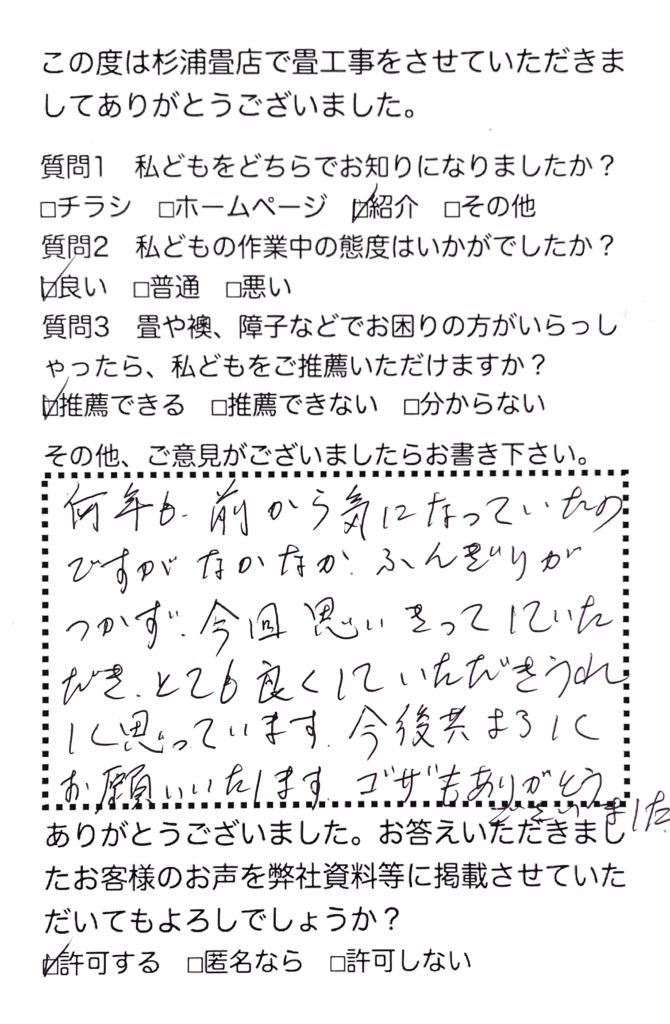 この度は杉浦畳店で畳工事をさせていただきま
してありがとうございました。
質問1 私どもをどちらでお知りになりましたか？
□チラシ □ホームページ ☑紹介 □その他
質問2 私どもの作業中の態度はいかがでしたか？
☑良い □普通 □悪い
質問3 畳や襖、障子などでお困りの方がいらっし
ゃったら、私どもをご推薦いただけますか？
☑推薦できる □推薦できない □分からない
その他、ご意見がございましたらお書き下さい。
何年も前から気になっていたの
ですがなかなかふんぎりが
つかず、今回思いきってしていた
だき、とても良くしていただきうれ
しく思っています。今後共よろしく
お願いいたします。ゴザもありがとう
ございました。
ありがとうございました。お答えいただきまし
たお客様のお声を弊社資料等に掲載させていた
だいてもよろしでしょうか？
☑許可する □匿名なら □許可しない